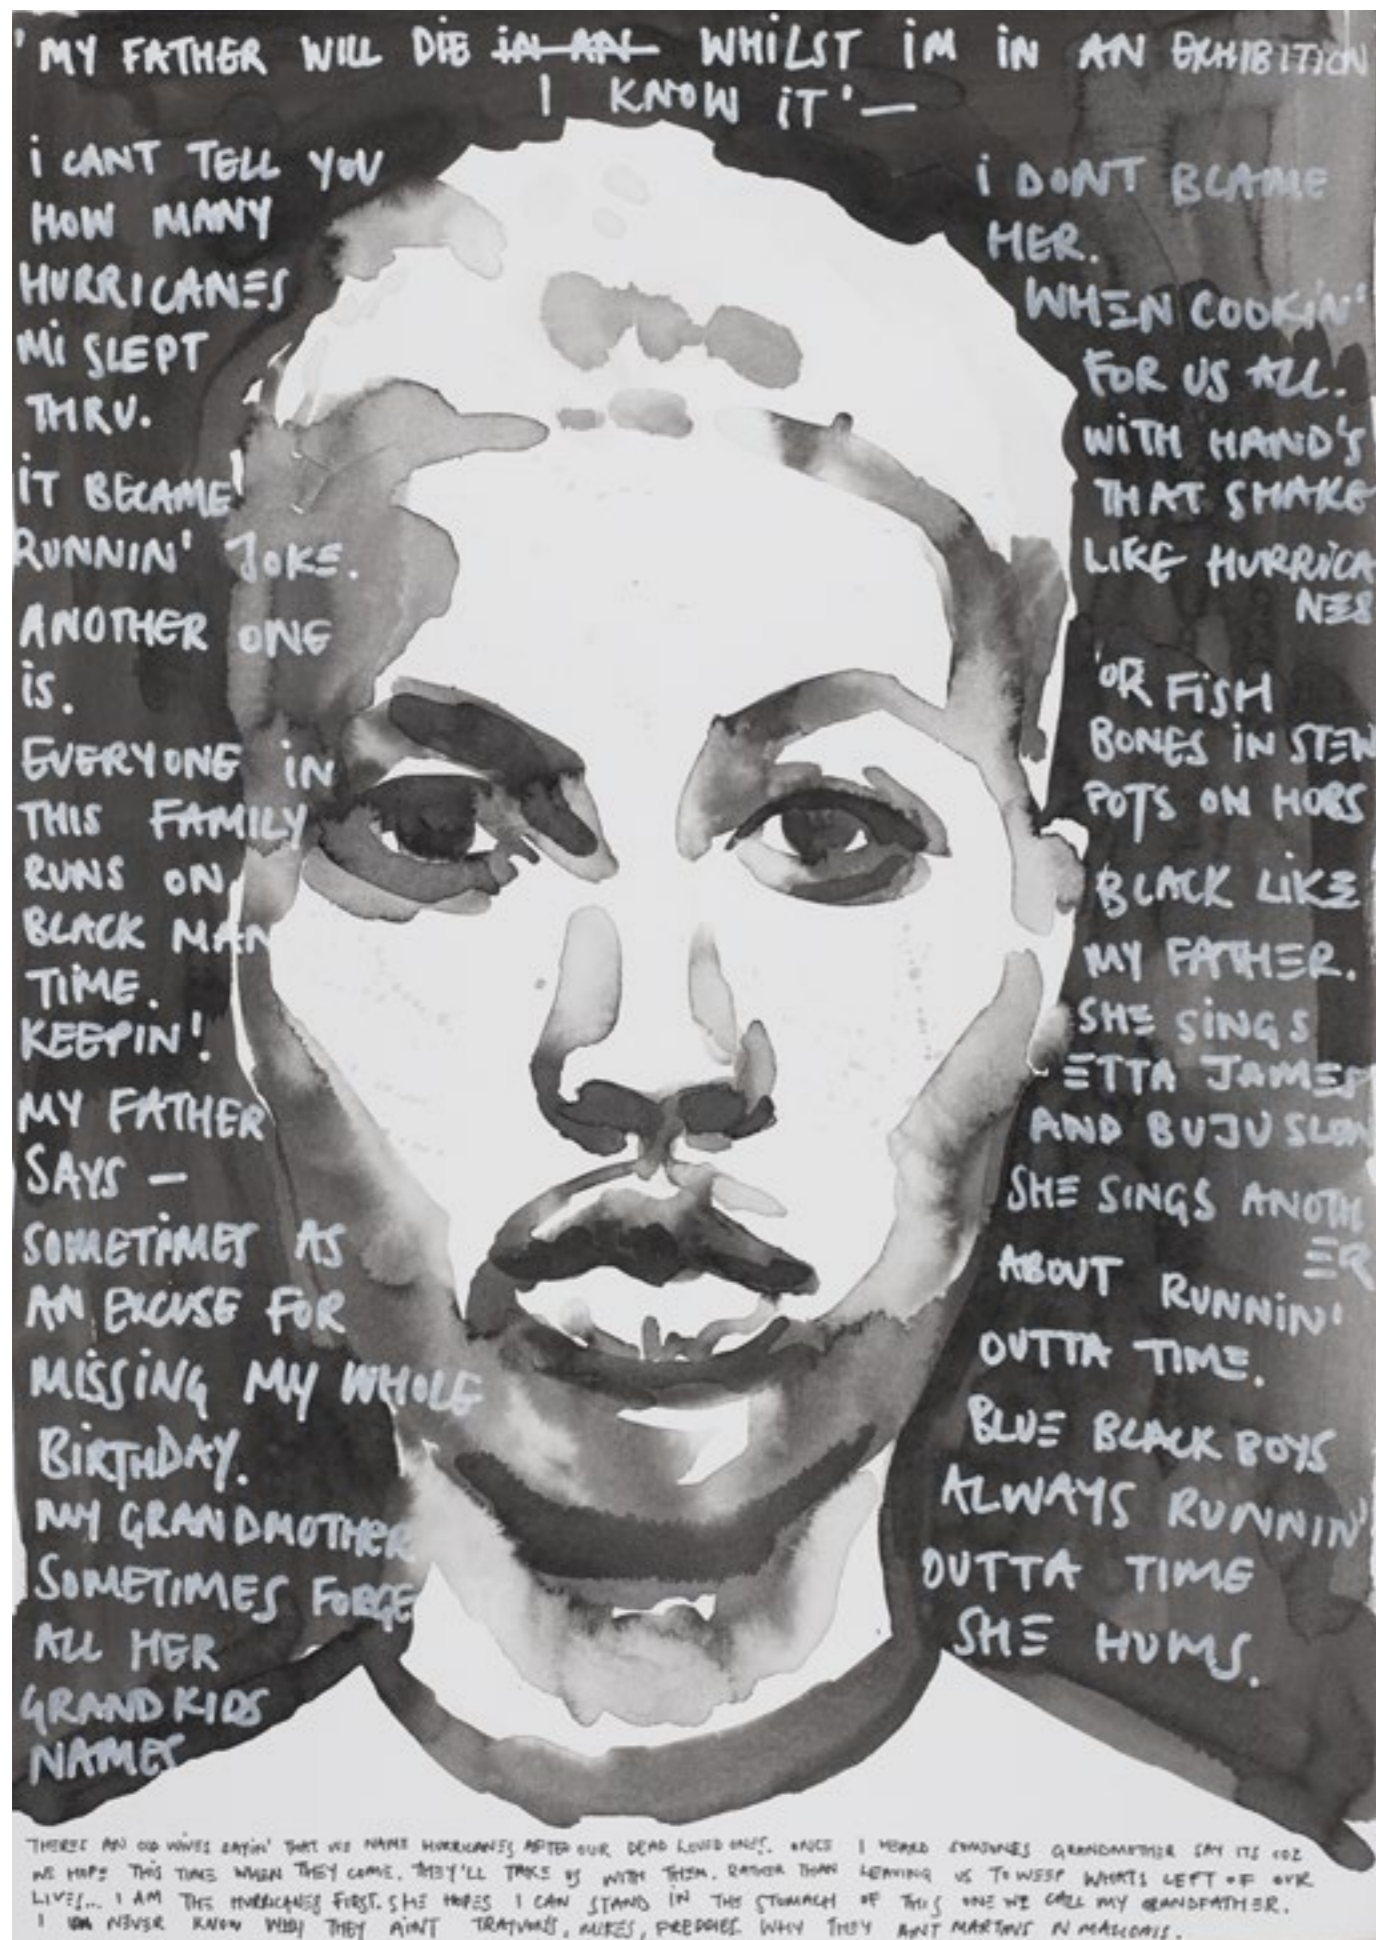 'MY FATHER WILL DIE IN AN WHILST IM IN AN EXHIBITION
I KNOW IT' —
I CANT TELL YOU
HOW MANY
HURRICANES
MI SLEPT
THRU.
IT BECAME
RUNNIN' JOKE.
ANOTHER ONE
IS.
EVERYONE IN
THIS FAMILY
RUNS ON
BLACK MAN
TIME.
KEEPIN'.
MY FATHER
SAYS —
SOMETIMES AS
AN EXCUSE FOR
MISSING MY WHOLE
BIRTHDAY.
MY GRANDMOTHER
SOMETIMES FORGE
ALL HER
GRANDKIDS
NAMES
I DONT BLAME
HER.
WHEN COOKIN'
FOR US ALL.
WITH HAND'S
THAT SHAKE
LIKE HURRICA
NES
'OR FISH
BONES IN STEW
POTS ON HOBS
BLACK LIKE
MY FATHER.
SHE SINGS
ETTA JAMES
AND BUJU SLOW
SHE SINGS ANOTH
ER
ABOUT RUNNIN'
OUTTA TIME.
BLUE BLACK BOYS
ALWAYS RUNNIN'
OUTTA TIME
SHE HUMS.
THERES AN OLD WIVES SAYIN' THAT WE NAME HURRICANES AFTER OUR DEAD LOVED ONES. ONCE I HEARD SOMEONES GRANDMOTHER SAY ITS COZ
WE HOPE THIS TIME WHEN THEY COME. THEY'LL TAKE US WITH THEM. RATHER THAN LEAVING US TO WEEP WHATS LEFT OF OUR
LIVES... I AM THE HURRICANES FIRST. SHE HOPES I CAN STAND IN THE STOMACH OF THIS ONE WE CALL MY GRANDFATHER.
I NEVER KNOW WHY THEY AINT TRAYVONS, MIKES, FREDDIES WHY THEY AINT MARTINS N MALCOMS.